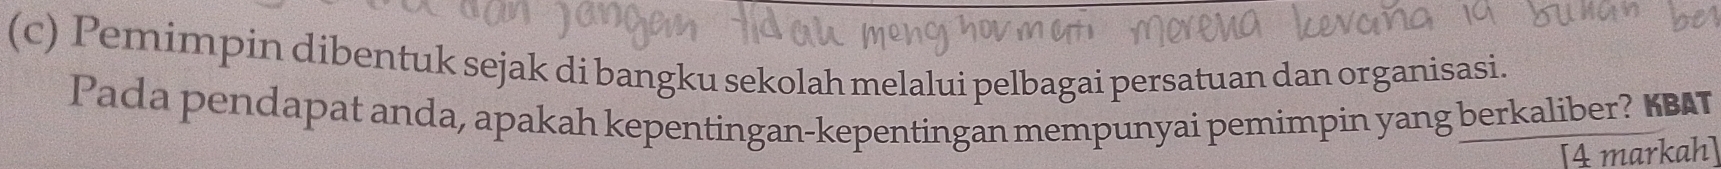 dan jangan tidak menghormati mereka kerana ia bukan
(c) Pemimpin dibentuk sejak di bangku sekolah melalui pelbagai persatuan dan organisasi.
Pada pendapat anda, apakah kepentingan-kepentingan mempunyai pemimpin yang berkaliber? KBAT
[4 markah]